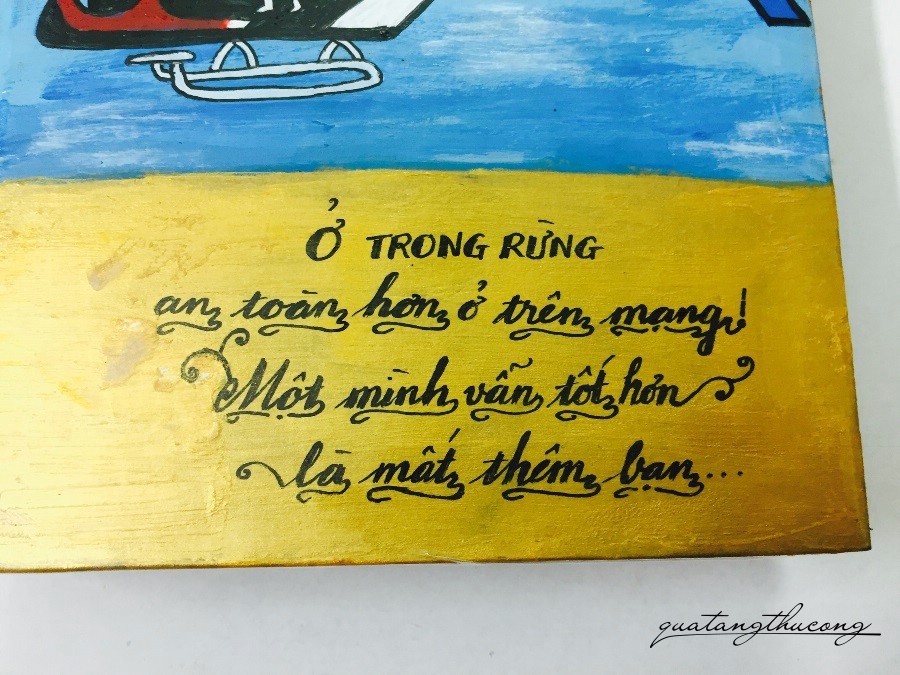 Ở TRONG RỪNG
an toàn hơn ở trên mạng!
Một mình vẫn tốt hơn
là mất thêm bạn...
quatangthucong